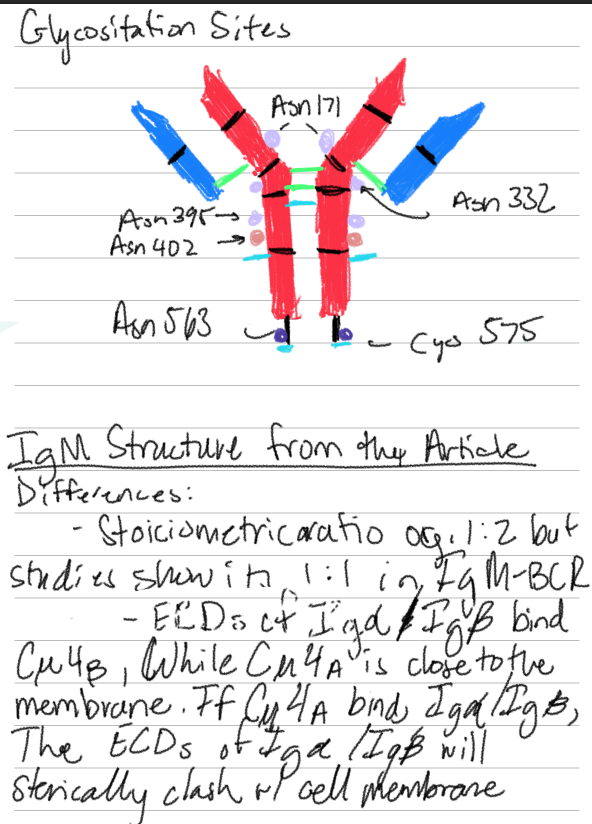 Glycositation Sites
Asn 171
Asn 332
Asn 395
Asn 402
Asn 563
Cys 575
IgM Structure from the Article
Differences:
- Stoiciometric ratio org. 1:2 but
studies show its 1:1 in IgM-BCR
- ECDs of Igα/Igβ bind
Cμ4B, While Cμ4A is close to the
membrane. If Cμ4A binds Igα/Igβ,
The ECDs of Igα/Igβ will
sterically clash w/ cell membrane